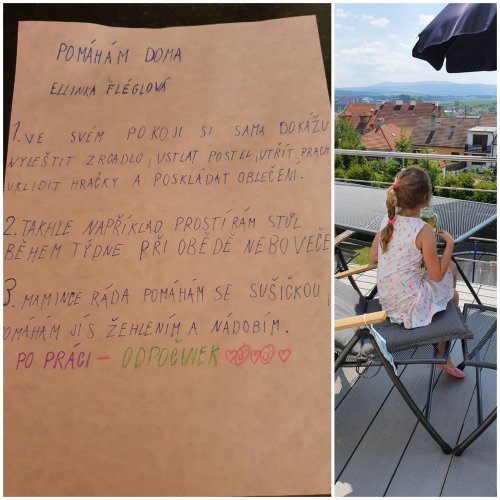 POMÁHÁM DOMA
ELLINKA FLÉGLOVÁ
1. VE SVÉM POKOJI SI SAMA DOKÁŽU
VYLEŠTIT ZRCADLO, USTLAT POSTEL, UTŘÍT PRACH
UKLIDIT HRAČKY A POSKLÁDAT OBLEČENÍ.
2. TAKHLE NAPŘÍKLAD PROSTÍRÁM STŮL
BĚHEM TÝDNE PŘI OBĚDĚ NEBO VEČE
3. MAMINCE RÁDA POMÁHÁM SE SUŠIČKOU,
POMÁHÁM JÍ S ŽEHLENÍM A NÁDOBÍM.
PO PRÁCI – ODPOČINEK